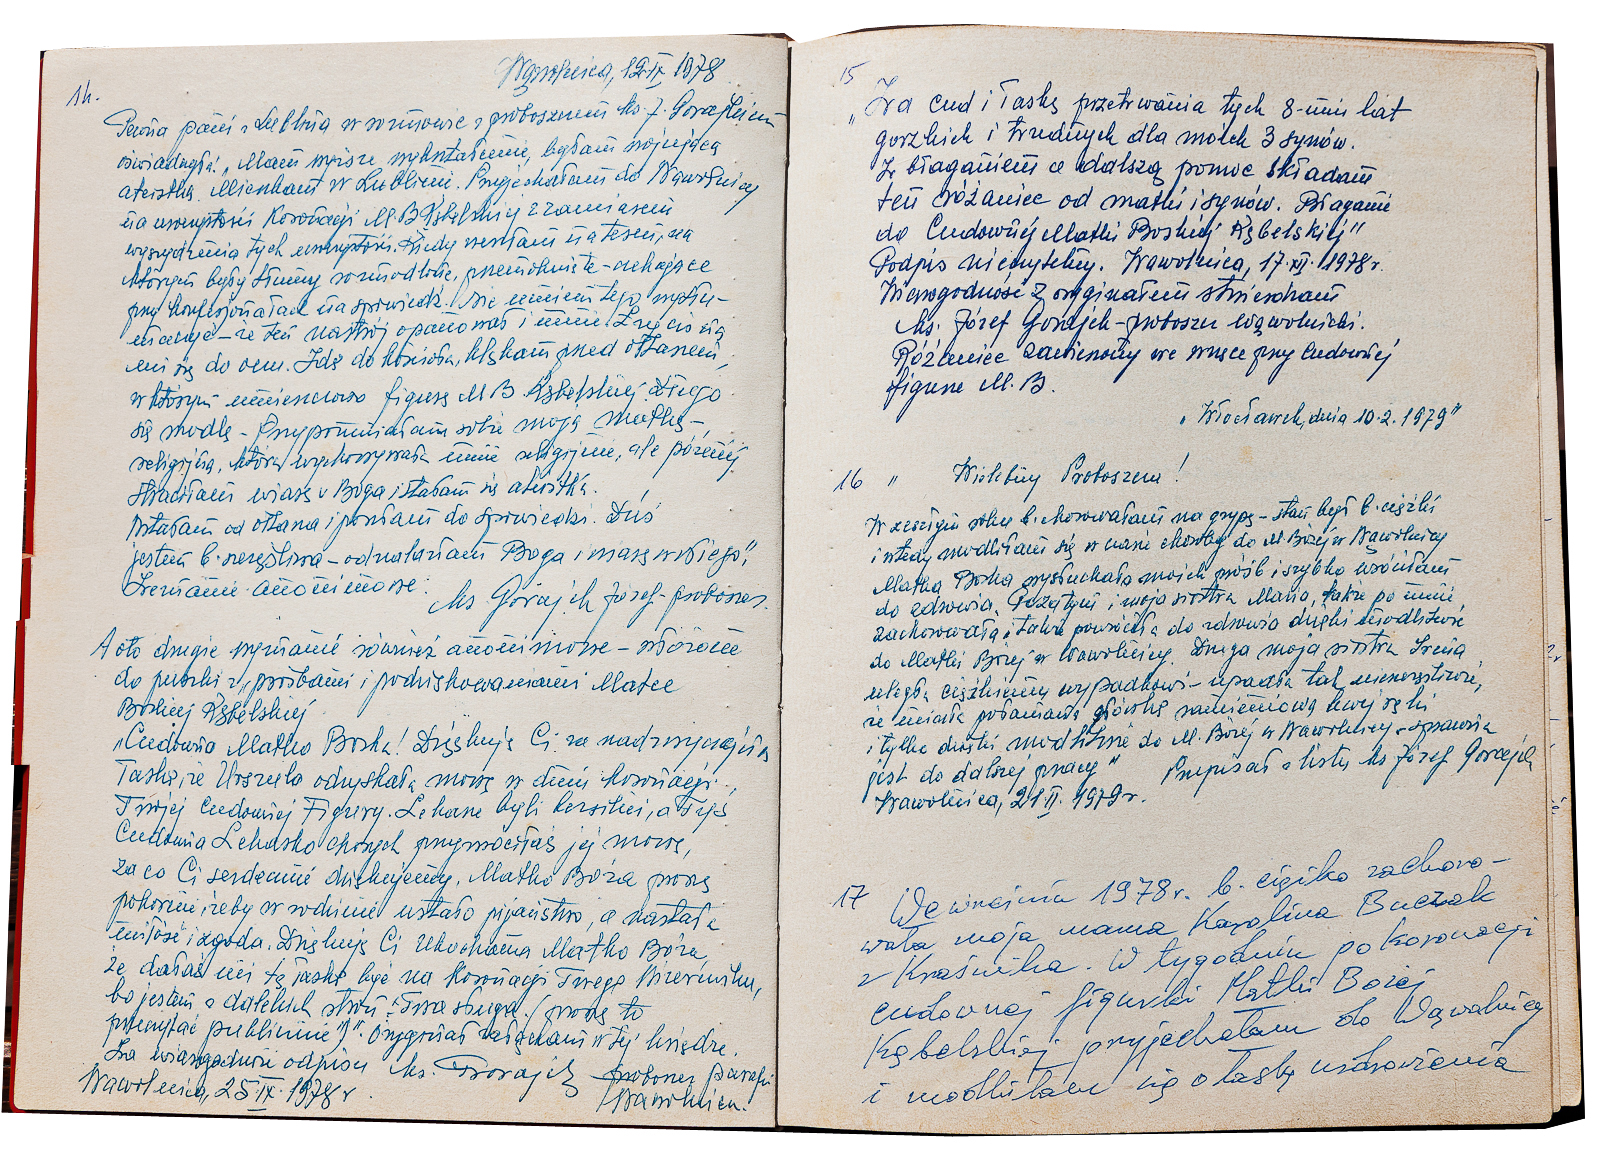 Wąwolnica, 12 IX 1978
14.
Pewna pani z Lublina w rozmowie z proboszczem ks. J. Gorajkiem
oświadczyła: „Mam wyższe wykształcenie, byłam wojującą
ateistką. Mieszkam w Lublinie. Przyjechałam do Wąwolnicy
na uroczystości Koronacji M.B. Kębelskiej z zamiarem
wyszydzenia tych uroczystości. Kiedy weszłam na teren, na
którym były tłumy rozmodlone, przemoknięte - czekające
przy konfesjonałach na spowiedź. Nie umiem tego wytłu-
maczyć - że ten nastrój opanował i mnie. Łzy cisną
mi się do oczu. Idę do kościoła, klękam przed ołtarzem,
w którym umieszczono figurę M B. Kębelskiej. Długo
się modlę - Przypomniałam sobie moją matkę -
religijną, która wychowywała mnie religijnie, ale później
straciłam wiarę w Boga i stałam się ateistką.
Wstałam od ołtarza i poszłam do spowiedzi. Dziś
jestem b. szczęśliwa - odnalazłam Boga i wiarę w Niego".
Zeznanie anonimowe.
Ks. Gorajek Józef - proboszcz.
A oto drugie wyznanie również anonimowe - włożone
do puszki z „prośbami i podziękowaniami Matce
Boskiej Kębelskiej
„Cudowna Matko Boska! Dziękuję Ci za nadzwyczajną
łaskę, że Urszula odzyskała mowę w dniu koronacji
Twojej Cudownej Figury. Lekarze byli bezsilni, a Tyś
Cudowna Lekarko chorych przywróciłaś jej mowę,
za co Ci serdecznie dziękujemy. Matko Boża proszę
pokornie, żeby w rodzinie ustało pijaństwo, a nastała
miłość i zgoda. Dziękuję Ci Ukochana Matko Boża,
że dałaś mi tę łaskę być na koronacji Twego Wizerunku,
bo jestem z dalekich stron. Twa sługa. (proszę to
przeczytać publicznie)". Oryginał załączam w tej księdze.
Za wiarygodność odpisu ks. Gorajek proboszcz parafii
Wąwolnica, 25 IX. 1978 r. Wąwolnica.
15
„Za cud i łaskę przetrwania tych 8-miu lat
gorzkich i trudnych dla moich 3 synów.
Z błaganiem o dalszą pomoc składam
ten różaniec od matki i synów. Błaganie
do Cudownej Matki Boskiej Kębelskiej"
Podpis nieczytelny. Wąwolnica, 17. XII. 1978 r.
Wiarogodność z oryginałem stwierdzam
ks. Józef Gorajek - proboszcz wąwolnicki.
Różaniec zawieszony we wnęce przy Cudownej
figurze M. B.
„Włocławek, dnia 10.2.1979"
16 „ Wielebny Proboszczu!
W zeszłym roku b. chorowałam na grypę - stan był b. ciężki
i wtedy modliłam się w czasie choroby do M. Bożej w Wąwolnicy
Matka Boska wysłuchała moich próśb i szybko wróciłam
do zdrowia. Poza tym i moja siostra Maria, także po mnie
zachorowała, i także powróciła do zdrowia dzięki modlitwie
do Matki Bożej w Wąwolnicy. Druga moja siostra Irena
uległa ciężkiemu wypadkowi - upadła tak nieszczęśliwie,
że miała połamaną główkę ramieniową lewej ręki
i tylko dzięki modlitwie do M. Bożej w Wąwolnicy - sprawna
jest do dalszej pracy" Przepisał z listu ks Józef Gorajek
Wąwolnica, 21 II. 1979 r.
17 We wrześniu 1978 r. b. ciężko zachoro-
wała moja mama Karolina Buczak
z Kraśnika. W tygodniu po koronacji
cudownej figurki Matki Bożej
Kębelskiej przyjechałam do Wąwolnicy
i modliłam się o łaskę uzdrowienia